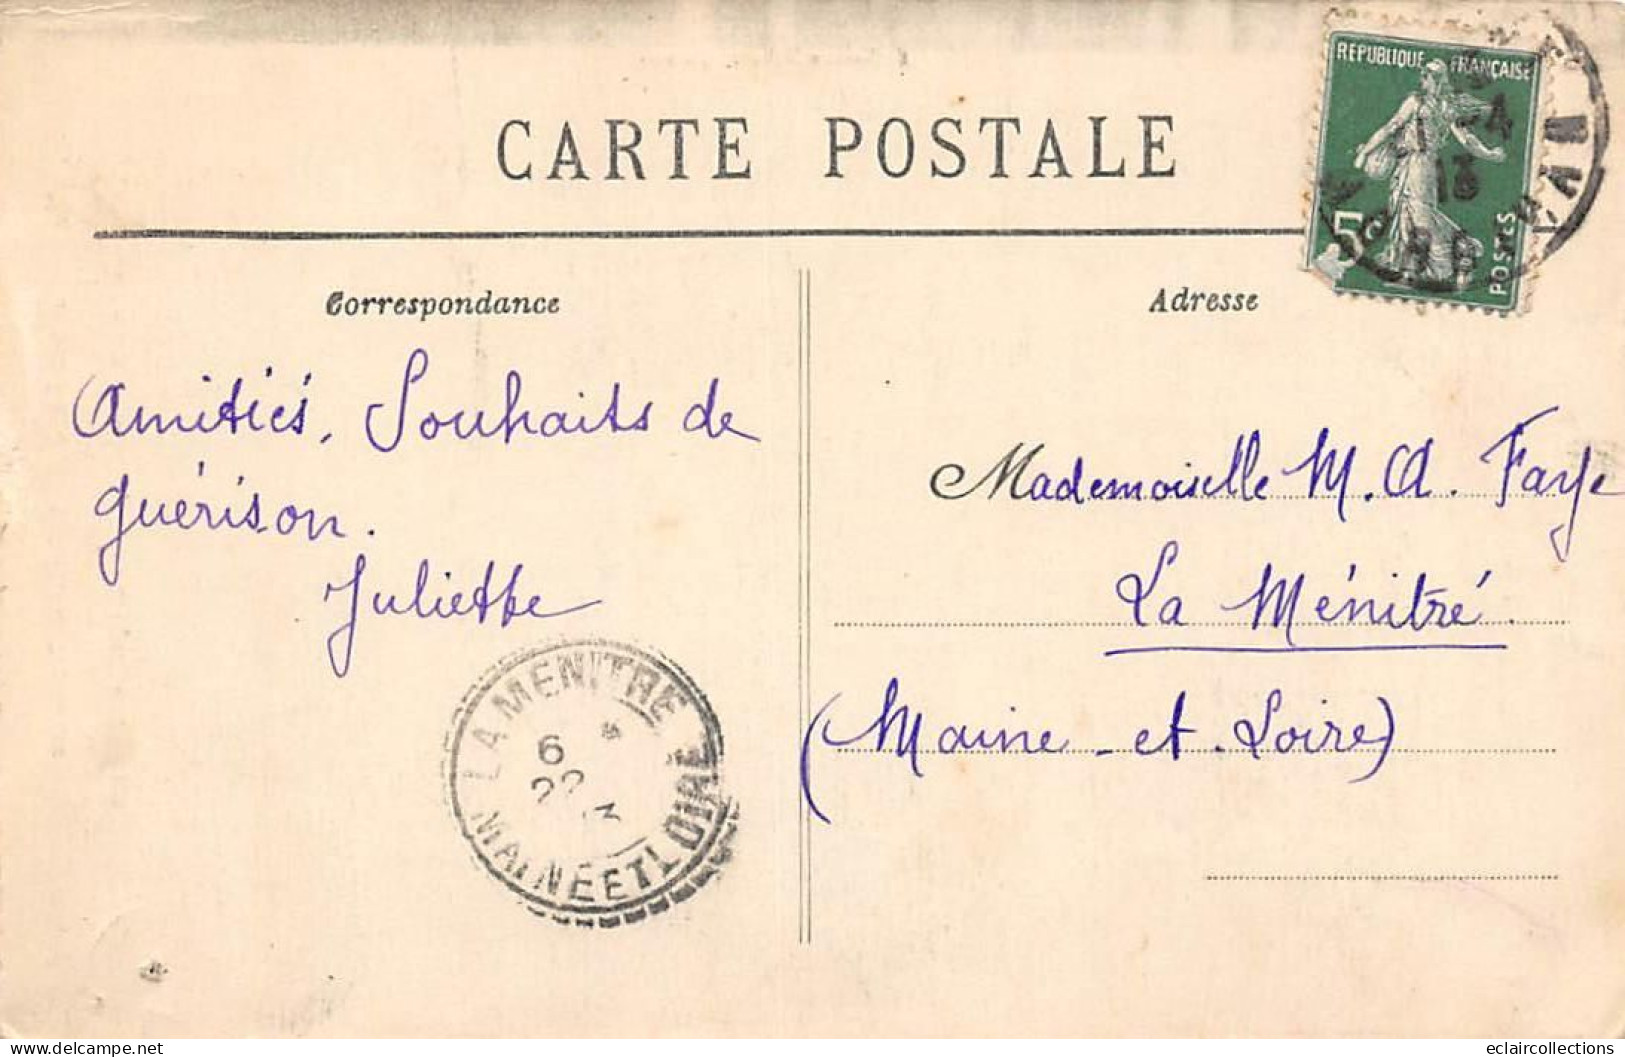 CARTE POSTALE
REPUBLIQUE FRANÇAISE
5
POSTES
13
Correspondance
Adresse
Amitiés, Souhaits de
guérison.
Juliette
Mademoiselle M. A. Faye
La Ménitré.
(Maine-et-Loire)
LA MENITRE
6
22
MAINE ET LOIRE
delcampe.net
eclaircollections